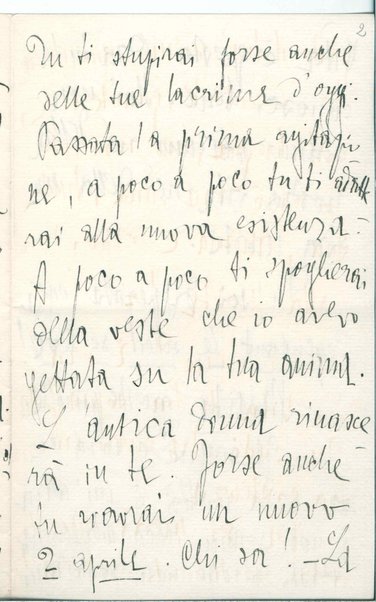 2
Tu ti stupirai forse anche
delle tue lacrime d'oggi.
Passata la prima agitazio
ne, a poco a poco tu ti adatte
rai alla nuova esistenza.
A poco a poco ti spoglierai
della veste che io avevo
gettata su la tua anima.
L'antica donna rinasce
rà in te. Forse anche
in vovrai un nuovo
2 aprile. Chi sa! – La